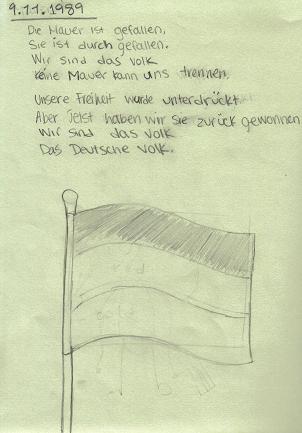 9.11.1989
Die Mauer ist gefallen,
Sie ist durch gefallen.
Wir sind das Volk
Keine Mauer kann uns trennen.
Unsere Freiheit wurde unterdrückt
Aber Jetst haben wir Sie zurück gewonnen
Wir sind das Volk
Das Deutsche Volk.